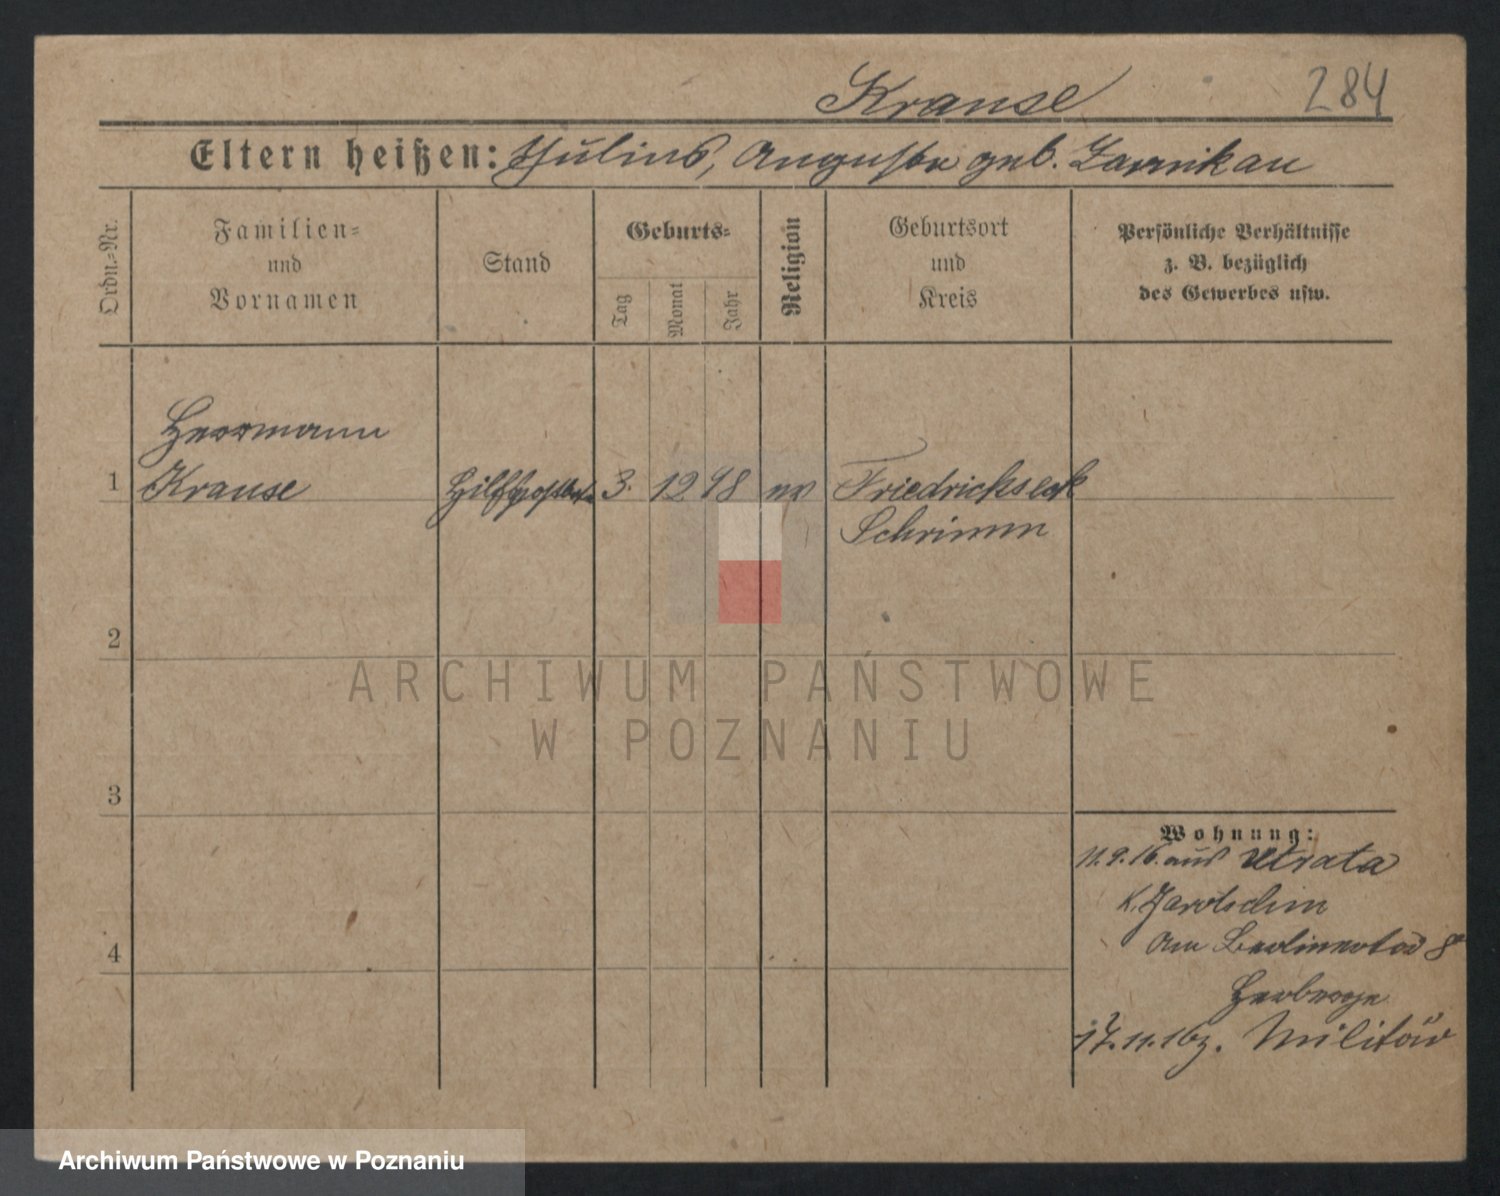 Krause
284
Eltern heißen: Julius, Auguste geb. Zarnikau
Ordn.=Nr.
Familien=
und
Vornamen
Stand
Geburts=
Tag
Monat
Jahr
Religion
Geburtsort
und
Kreis
Persönliche Verhältnisse
z. B. bezüglich
des Gewerbes usw.
Herrmann
1 Krause 3. 12 98 ev Friedrichseck
Schrimm
2
3
4
Wohnung:
11.9.16. aus Utrata
K. Jarotschin
Am Berlinertor 8
Herberge
17.11.16 z. Militär
ARCHIWUM PAŃSTWOWE
W POZNANIU
Archiwum Państwowe w Poznaniu